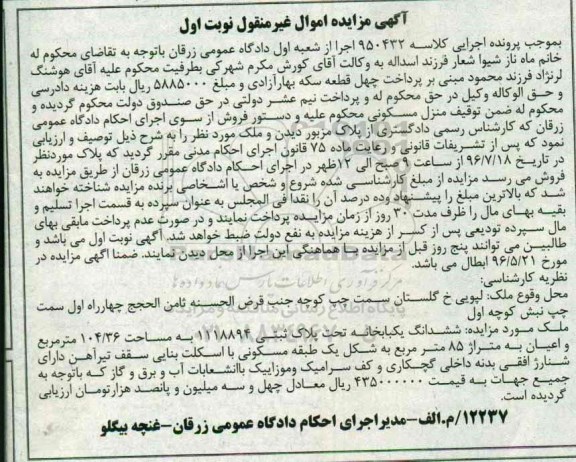 آگهی مزایده اموال غیرمنقول نوبت اول
بموجب پرونده اجرایی کلاسه ۹۵۰۴۳۲ اجرا از شعبه اول دادگاه عمومی زرقان باتوجه به تقاضای محکوم له
خانم ماه ناز شیوا شعار فرزند اسداله به وکالت آقای کورش مکرم شهرکی بطرفیت محکوم علیه آقای هوشنگ
لرنژاد فرزند محمود مبنی بر پرداخت چهل قطعه سکه بهارآزادی و مبلغ ۵۸۸۵۰۰۰ ریال بابت هزینه دادرسی
و حق الوکاله وکیل در حق محکوم له و پرداخت نیم عشر دولتی در حق صندوق دولت محکوم گردیده و
محکوم له ضمن توقیف منزل مسکونی محکوم علیه و دستور فروش از سوی اجرای احکام دادگاه عمومی
زرقان که کارشناس رسمی دادگستری از پلاک مزبور دیدن و ملک مورد نظر را به شرح ذیل توصیف و ارزیابی
نمود که پس از تشریفات قانونی و رعایت ماده ۷۵ قانون اجرای احکام مدنی مقرر گردید که پلاک موردنظر
در تاریخ ۹۶/۷/۱۸ از ساعت ۹ صبح الی ۱۲ظهر در اجرای احکام دادگاه عمومی زرقان از طریق مزایده به
فروش می رسد مزایده از مبلغ کارشناسی شده شروع و شخص یا اشخاصی برنده مزایده شناخته خواهند
شد که بالاترین مبلغ را پیشنهاد وده درصد آن را نقدا فی المجلس به عنوان سپرده به قسمت اجرا تسلیم و
بقیه بهای مال را ظرف مدت ۳۰ روز از زمان مزایده پرداخت نمایند و در صورت عدم پرداخت مابقی بهای
مال سپرده تودیعی پس از کسر از هزینه مزایده به نفع دولت ضبط خواهد شد. آگهی نوبت اول می باشد و
طالبین می توانند پنج روز قبل از مزایده با هماهنگی این اجرا از محل دیدن نمایند. ضمنا آگهی مزایده در
مورخ ۹۶/۵/۲۱ ابطال می باشد.
نظریه کارشناسی:
محل وقوع ملک: لپویی خ گلستان سمت چپ کوچه جنب قرض الحسنه ثامن الحجج چهارراه اول سمت
چپ نبش کوچه اول
ملک مورد مزایده: ششدانگ یکبابخانه تحت پلاک ثبتی ۱۲۱۸۸۹۴ به مساحت ۱۰۴/۳۶ مترمربع
و اعیان به متراژ ۸۵ متر مربع به شکل یک طبقه مسکونی با اسکلت بنایی سقف تیرآهن دارای
شنارژ افقی بدنه داخلی گچکاری و کف سرامیک وموزاییک باانشعابات آب و برق و گاز که باتوجه به
جمیع جهات به قیمت ۴۳۵۰۰۰۰۰۰ ریال معادل چهل و سه میلیون و پانصد هزارتومان ارزیابی
گردیده است.
۱۲۲۳۷/م.الف-مدیراجرای احکام دادگاه عمومی زرقان-غنچه بیگلو